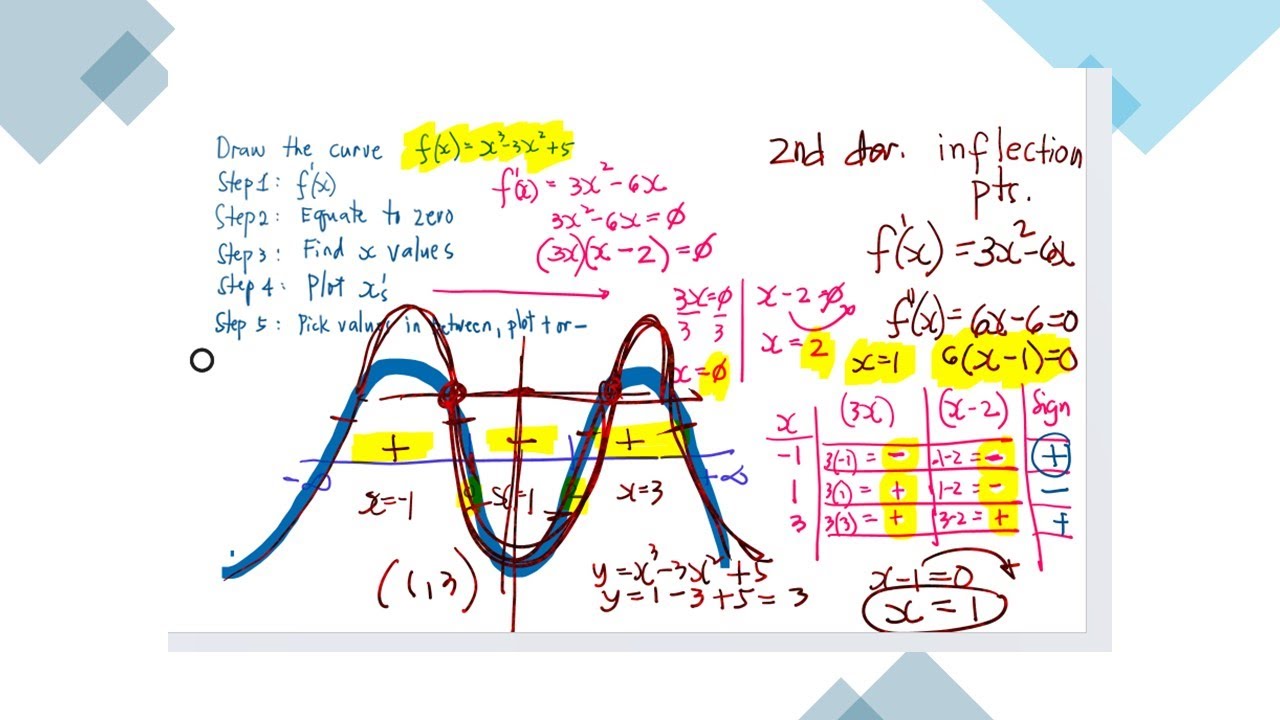 Draw the curve f(x) = x³-3x²+5
Step 1: f'(x)
Step 2: Equate to zero
Step 3: Find x values
Step 4: Plot x's
Step 5: Pick values in between, plot + or -
f'(x) = 3x²-6x
3x²-6x=0
(3x)(x-2)=0
3x=0
3 3
x=0
x-2=0
x=2
2nd der. inflection
pts.
f'(x) = 3x²-6x
f''(x) = 6x-6=0
x=1 6(x-1)=0
x (3x) (x-2) Sign
-1 3(-1) = - -1-2 = - +
1 3(1) = + 1-2 = - -
3 3(3) = + 3-2 = + +
+ - +
-∞ +∞
x=-1 x=1 x=3
(1,3)
y=x³-3x²+5
y=1-3+5=3
x-1=0
x=1